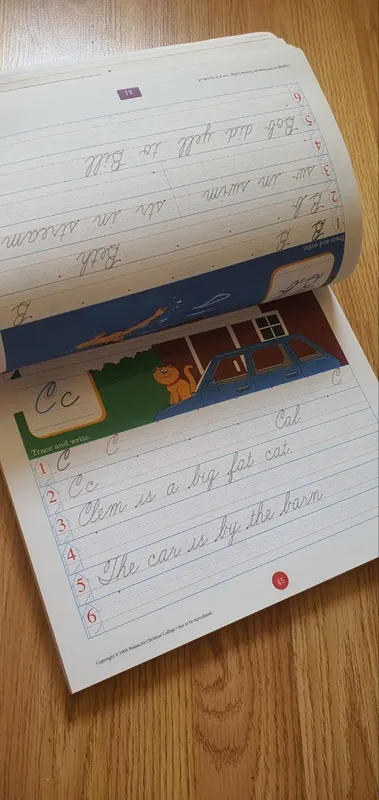 Bb
Trace and write.
1 B B B
2 Bb Beth
3 sw in swim str in stream
4
5 Bob did yell to Bill
6
44
Cc
Trace and write.
1 C C C
2 Cc Cal
3 Clem is a big fat cat.
4
5 The car is by the barn.
6
45
Copyright © Pensacola Christian College • Not to be reproduced.